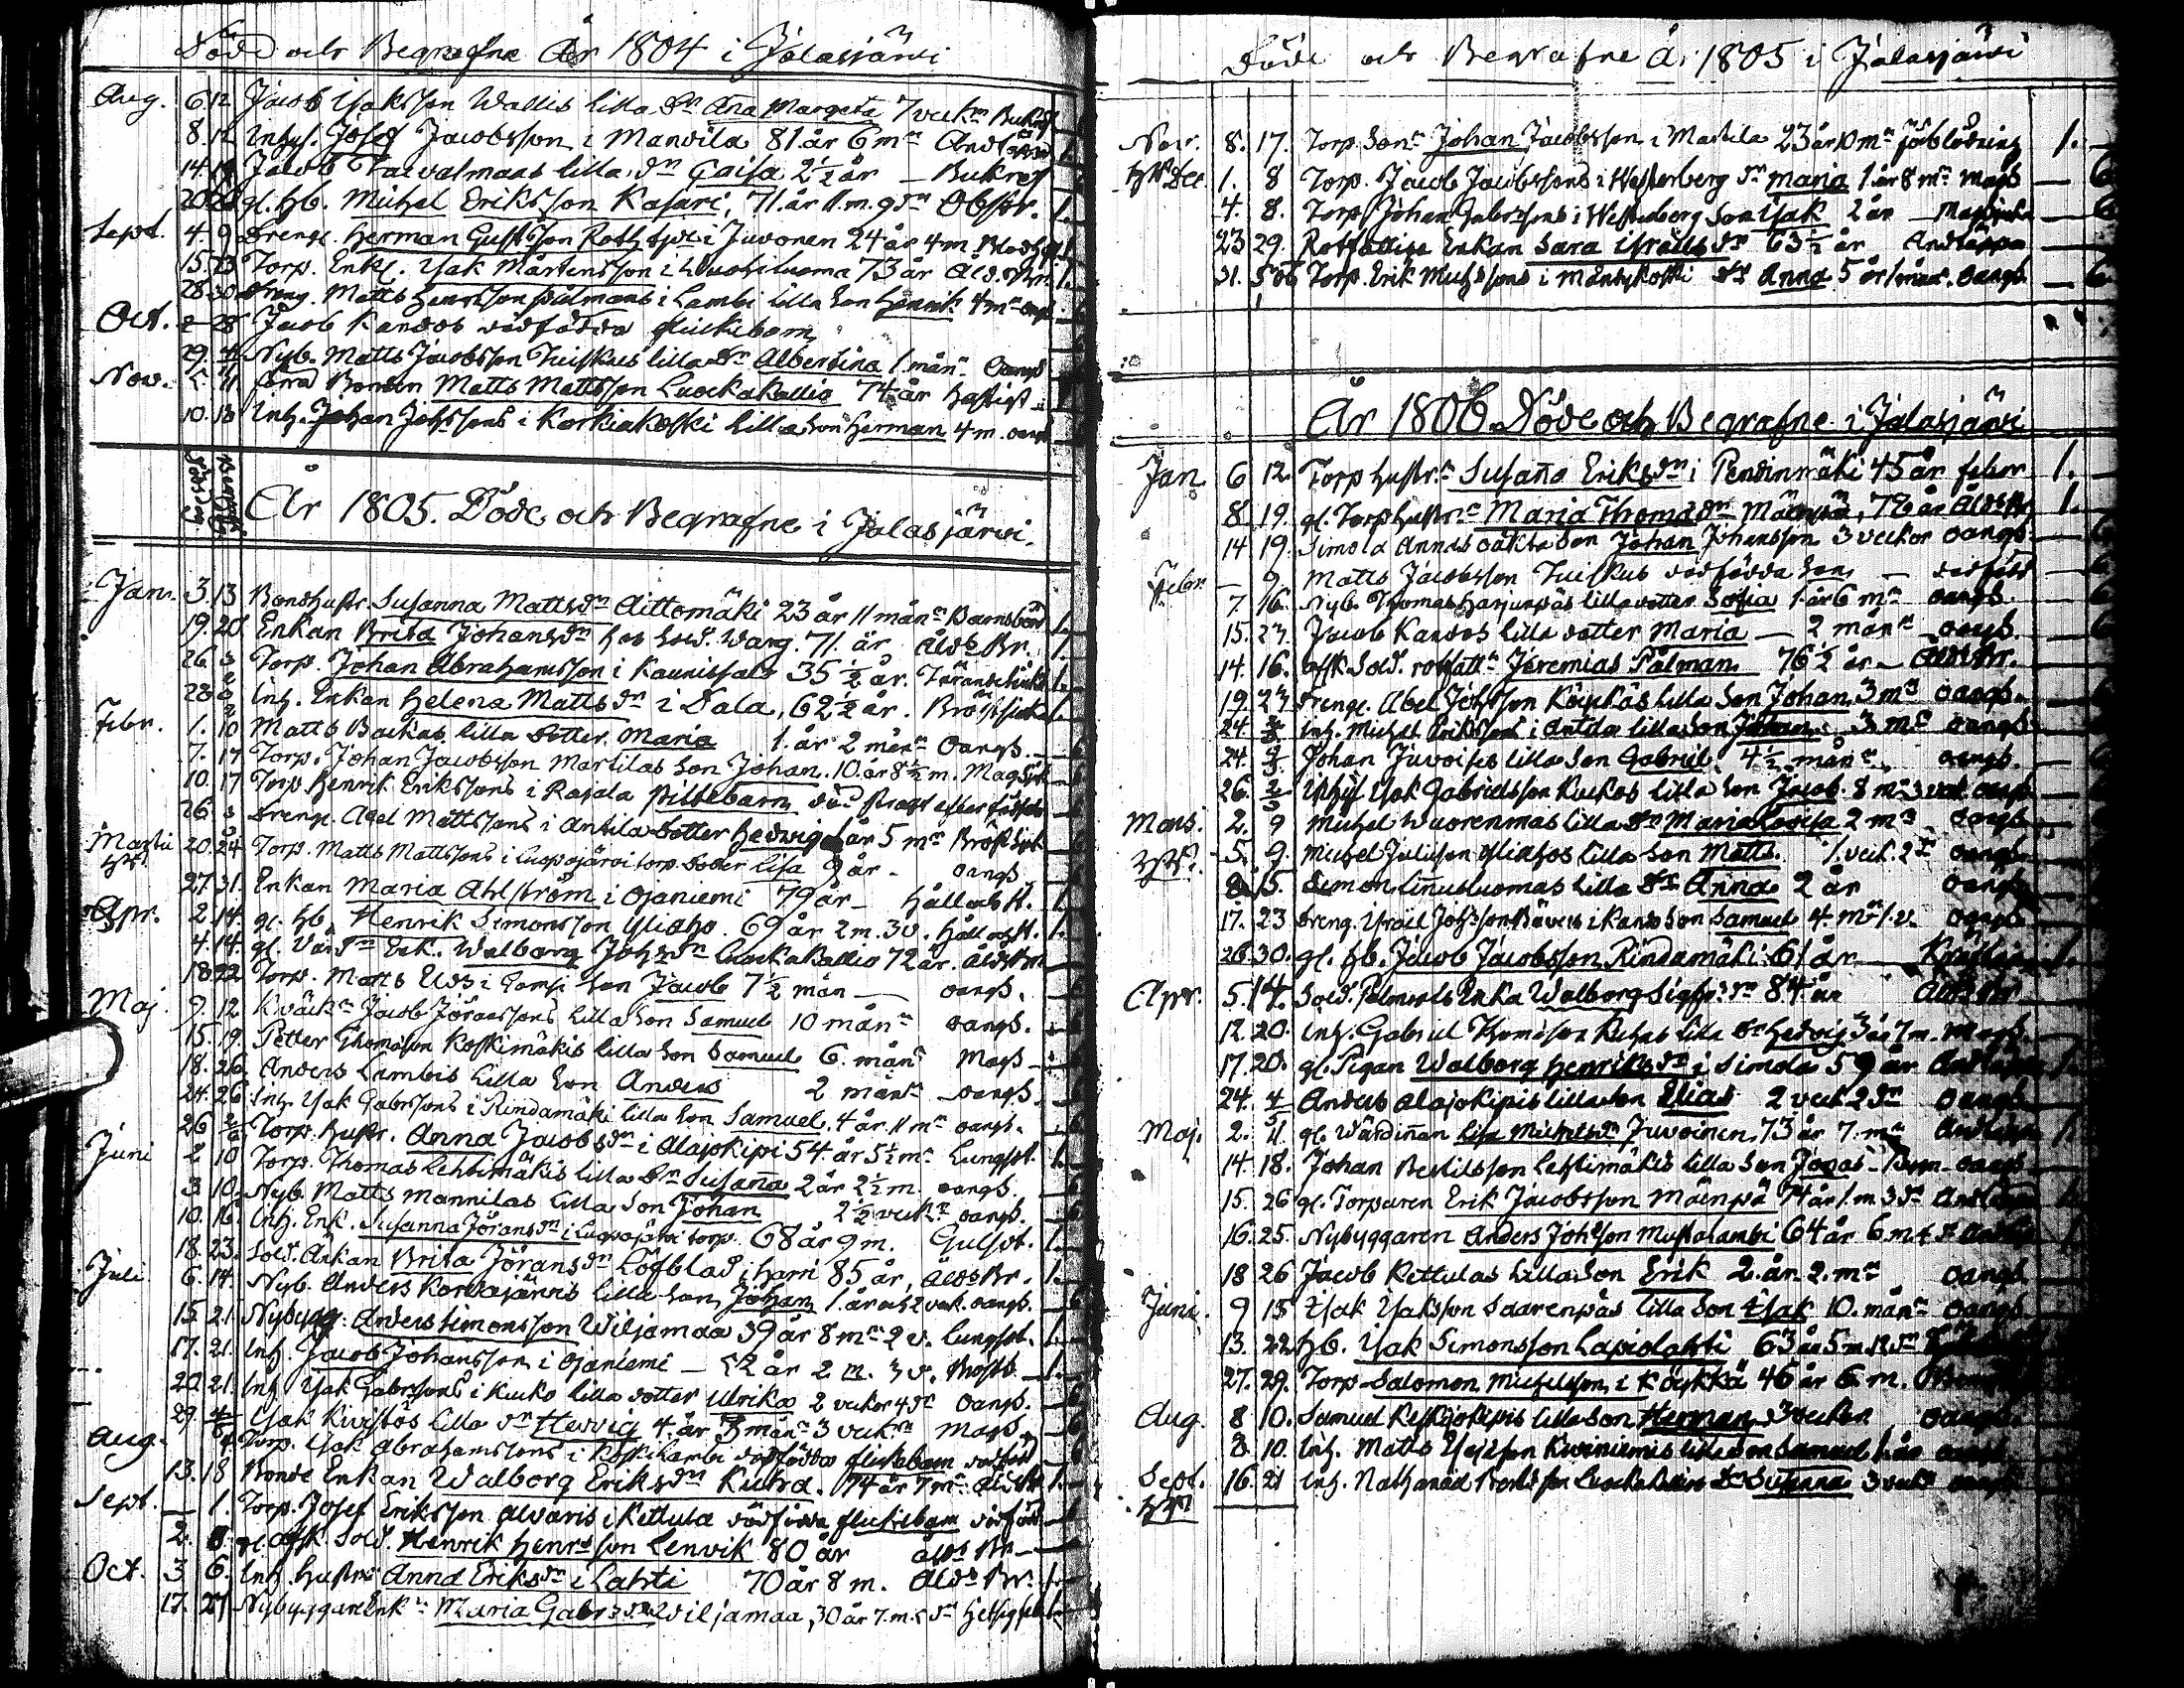 Döde och Begrafne År 1804 i Jalasjärvi
Aug. 6 12 Jacob Isaksson Wallis lilla dr Aña Margeta 7 veckr Bukref
8. 12 Inhys. Josef Jacobsson i Mandila 81 år 6 mr Andtäppa 1.
14. 19 Jacob Taivalmaas lilla dr Caisa 2½ år — Bukref
20 26 gl. Hb. Michel Eriksson Kasari, 71. år 11. m. 9 dr Obstr. 1.
Sept. 4. 9 Drenge. Herman Gustafsson i Juvonen 24 år 4 m.
15. 23 Torp. Enkl. Isak Mårtensson i Luohiluoma 73 år Åld. Br. 1.
28. 30 Dreng. Matts Henricsson Pålmans i Lambi lilla son Henrik 4 mr oangs
Oct. 28 Jacob Kandos dödfödda flickebarn
29. Nyb. Matts Jacobsson Tuiskus lilla dr Albertina 1. månr Oangs
Nov. 5. 11 förra Bonden Matts Mattsson Luockakallio 74 år hastigt
10. 18 Inh. Johan Johssons i Korkiakoski lilla son Herman 4 m. oangs
År 1805. Döde och Begrafne i Jalasjärvi.
Jan. 3. 13 Bondhustr. Susanna Mattsdr Aittomäki 23 år 11 månr Barnsbörd 1.
19. 20 Enkan Brita Johansdr hos Sold. Warg. 71. år Åldr Br. 1.
26 3/2 Torp. Johan Abrahamsson i Kaunissalo 35½ år. 1.
28 3/2 Inh. Enkan Helena Mattsdr i Dala, 62½ år. Bröstsiuka 1.
Febr. 1. 10 Matts Backas lilla dotter Maria 1. år 2 månr Oangs.
7. 17 Torp. Johan Jacobsson Martilas son Johan. 10. år 8½ m. Magsiuk
10. 17 Torp. Henrik Erikssons i Rajala Piltebarn död straxt efter födseln
26. 3 Drenge. Abel Mattssons i Antila dotter Hedvig 1 år 5 mr Bröstsiuk
Martii 20. 24 Torp. Matts Mattssons i Luopajärvi torp. dotter Lisa 9 år - oangs
27. 31. Enkan Maria Ahlström i Ojaniemi 79 år - Håll och St. 1.
Apr. 2. 14. gl. Hb. Henrik Simonsson Yliaho. 69 år 2 m. 3 v. Håll och St. 1.
4. 14. gl. Värdn Enk. Walborg Johsdr Luockakallio 72 år. Åld. Br.
18 22 Torp. Matts i son Jacob 7½ mån — oangs.
Maj 9. 12 Jacob Jöranssons lilla son Samuel 10 månr oangs.
15. 19. Petter Thomasson Koskimäkis lilla son Samuel 6. månr Mags
18. 26 Anders Lambis lilla son Anders 2 månr oangs.
24. 26 Inh. Isak Gabrssons i Rindamäki lilla son Samuel. 4 år 11 mr oangs.
26 2/6 Torp. hustr. Anna Jacobsdr i Alajokipi 54 år 5½ mr Lungsot. 1.
Juni 2 10 Torp. Thomas Lehtimäkis lilla dr Susaña 2 år 2½ m. oangs.
3. 10. Nyb. Matts Mannilas lilla son Johan 2½ veckr oangs.
10. 16 Inh. Enk. Susanna Jöransdr i Luopajärvi torp. 68 år 9 m. Gulsot. 1.
18. 23. Sold. Änkan Brita Jöransdr Löfblad i Harri 85 år, Åldr Br. 1.
Juli 6. 14. Nyb. Anders Korkajärvis lilla son Johan 1. år och 2 veck. oangs.
15. 21. Nybygg. Anders Simonsson Wiljamaa 39 år 8 mr 2 v. Lungsot. 1.
17. 21. Inh. Jacob Johansson i Ojaniemi — 52 år 2 m. 3 v. 1.
20. 21. Inh Isak Gabrssons i Kucko lilla dotter Ulrika 2 veckor 4 dr oangs.
29. 4/8 Isak Kivistös lilla dr Hedvig 4. år 3 månr 3 veckr mags.
Aug. 4. Torp. Isak Abrahamssons i Koskilambi dödfödda flickebarn dödfödd
13. 18 Bonde Enkan Walborg Eriksdr Kuhra. 74 år 7 mr Åld. Br. 1.
Sept. — 1. Torp. Josef Eriksson Alvaris i Kettula dödfödda flickebarn dödfödd
2. 8 gl. afsk. Sold. Henrik Henrsson Lenvik 80 år Åldr Br.
Oct. 3 6. Inh. hustru Anna Eriksdr i Lahti 70 år 8 m. Åldr Br. 1.
17. 27 Nybyggare Enkn Maria Gabrsdr Wiljamaa, 30 år 7. m. 5 dr
Döde och Begrafne År 1805 i Jalasjärvi
Nov. 8. 17. Torp. Sonn Johan Jacobsson i Martila 23 år 10 mr förblödning 1.
Dec. 1. 8 Torp. Jacob Jacobssons i Westerberg dr Maria 1. år 8 mr mags
4. 8. Torp. Johan Gabrssons i Westerberg son Isak 2 år - Magsjuka
23 29. Rotfattige Enkan Sara Israelsdr 63½ år Andtäppa
31. 5/06 Torp. Erik Michssons i Mäntykoski dr Anna 5 år 1. mån. oangs.
År 1806. Döde och Begrafne i Jalasjärvi
Jan. 6 12. Torp. hustrn Susaña Eriksdr i Pendinmäki 45 år feber 1.
8 19. gl. Torp. hustrn Maria Thomasdr Mäenpä, 78 år Åld. Br. 1.
14 19. Simola Annas oäkta son Johan Johansson 3 veckor oangs.
Febr. — 9. Matts Jacobsson Tuiskus dödfödda son — dödfödd
7. 16. Nyb. Thomas Harjunpäs lilla dotter Sofia 1. år 6 mr oangs.
15. 23. Jacob Kandos lilla dotter Maria — 2 månr oangs.
14. 16. afsk. Sold. rotfattn Jeremias Pålman 76½ år - Åld. Br.
19. 23. Drenge. Abel Johsson Köykkäs lilla son Johan. 3 mr oangs.
24. 2/3 Inh. Michel Erikssons i Antila lilla son Johan 3 mr oangs.
24. 2/3 Johan Juvoises lilla son Gabriel. 4½ månr oangs.
26. 2/3 Isak Gabrielsson Kuckos lilla son Jacob. 8 mr 3 veck. oangs
Mars. 2. 9 Michel Wuorenmas lilla dr Maria Lovisa 2 mr oangs
5. 9. Michel Yliahos lilla son Matts. 1. veck. 2 dr oangs
8. 15. Simon Liñuluomas lilla dr Anna 2 år oangs
17. 23 Dreng. Israel Johsson Bävers i Kando son Samuel 4. mr 1. v. oangs
26. 30. gl. Hb. Jacob Jacobsson Rindamäki 61 år — Kräftan 1.
Apr. 5. 14. Sold. Palmrots Enka Walborg Sigfrsdr 84 år Åld. Br.
12. 20. Inh. Gabriel Thomasson lilla dr Hedvig 3 år 7 m. mags.
17. 20. gl. Pigan Walborg Henriksdr i Simola 59 år Andtäppa 1.
24. 4/5 Anders Alajokipis lilla son Elias 2 veck. 2 dr oangs
Maj. 2. 11. gl. Wärdinan Lisa Michelsdr Juvoinen, 73 år 7. mr Andtäppa 1.
14. 18. Johan Bertilsson Lehtimäkis lilla son Jonas oangs
15. 26 gl. Torparen Erik Jacobsson Mäenpä 74 år 1. m 3 dr Andtäppa
16. 25. Nybyggaren Anders Johsson Mustalambi 64 år 6 m. 4 dr
18 26 Jacob Kettulas lilla son Erik 2. år. 2. mr oangs
Juni. 9 15 Isak Isaksson Saarenpäs lilla son Isak 10. månr oangs
13. 22 Hb. Isak Simonsson Lapiolahti 63 år 5 m. 12 dr
27. 29. Torp. Salomon Michelsson i Köykkä 46 år 6 m.
Aug. 8 10. Samuel Keskijokipis lilla son Herman 3 veckor oangs
8. 10. Inh. Matts lilla son Samuel 1. år oangs
Sept. 16. 21 Inh. Nathanael lilla dr Susanna 3 veckr oangs